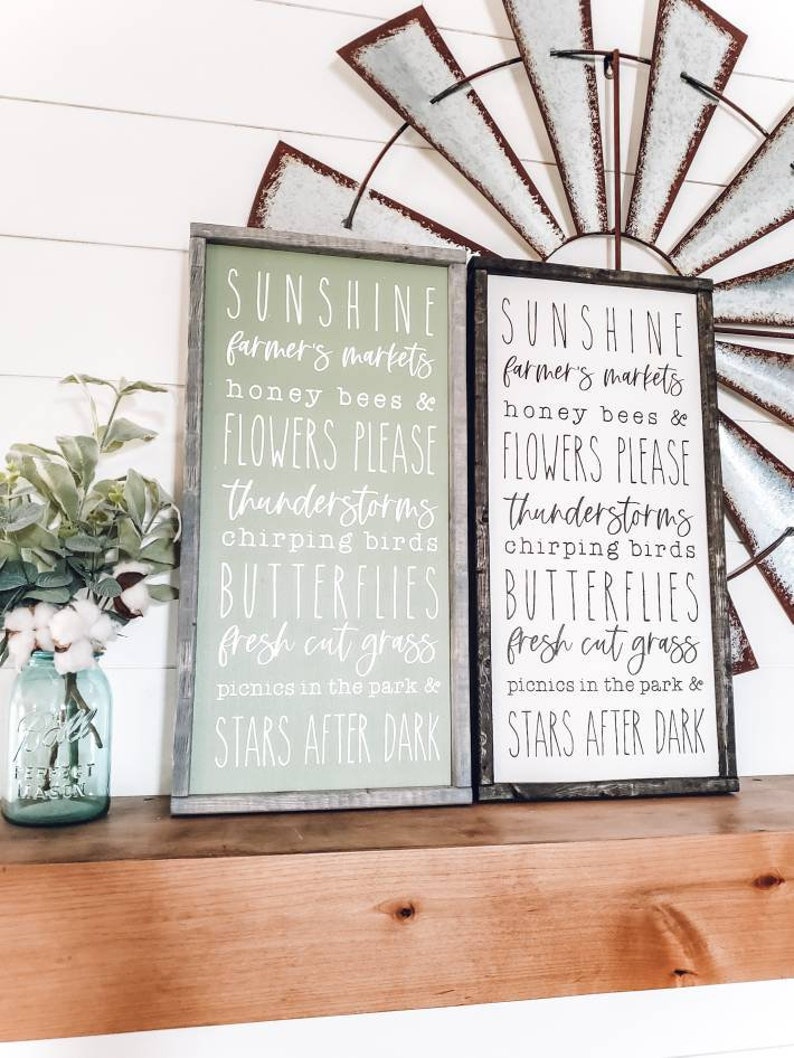 SUNSHINE
farmer's markets
honey bees &
FLOWERS PLEASE
thunderstorms
chirping birds
BUTTERFLIES
fresh cut grass
picnics in the park &
STARS AFTER DARK
SUNSHINE
farmer's markets
honey bees &
FLOWERS PLEASE
thunderstorms
chirping birds
BUTTERFLIES
fresh cut grass
picnics in the park &
STARS AFTER DARK
Ball
PERFECT
MASON